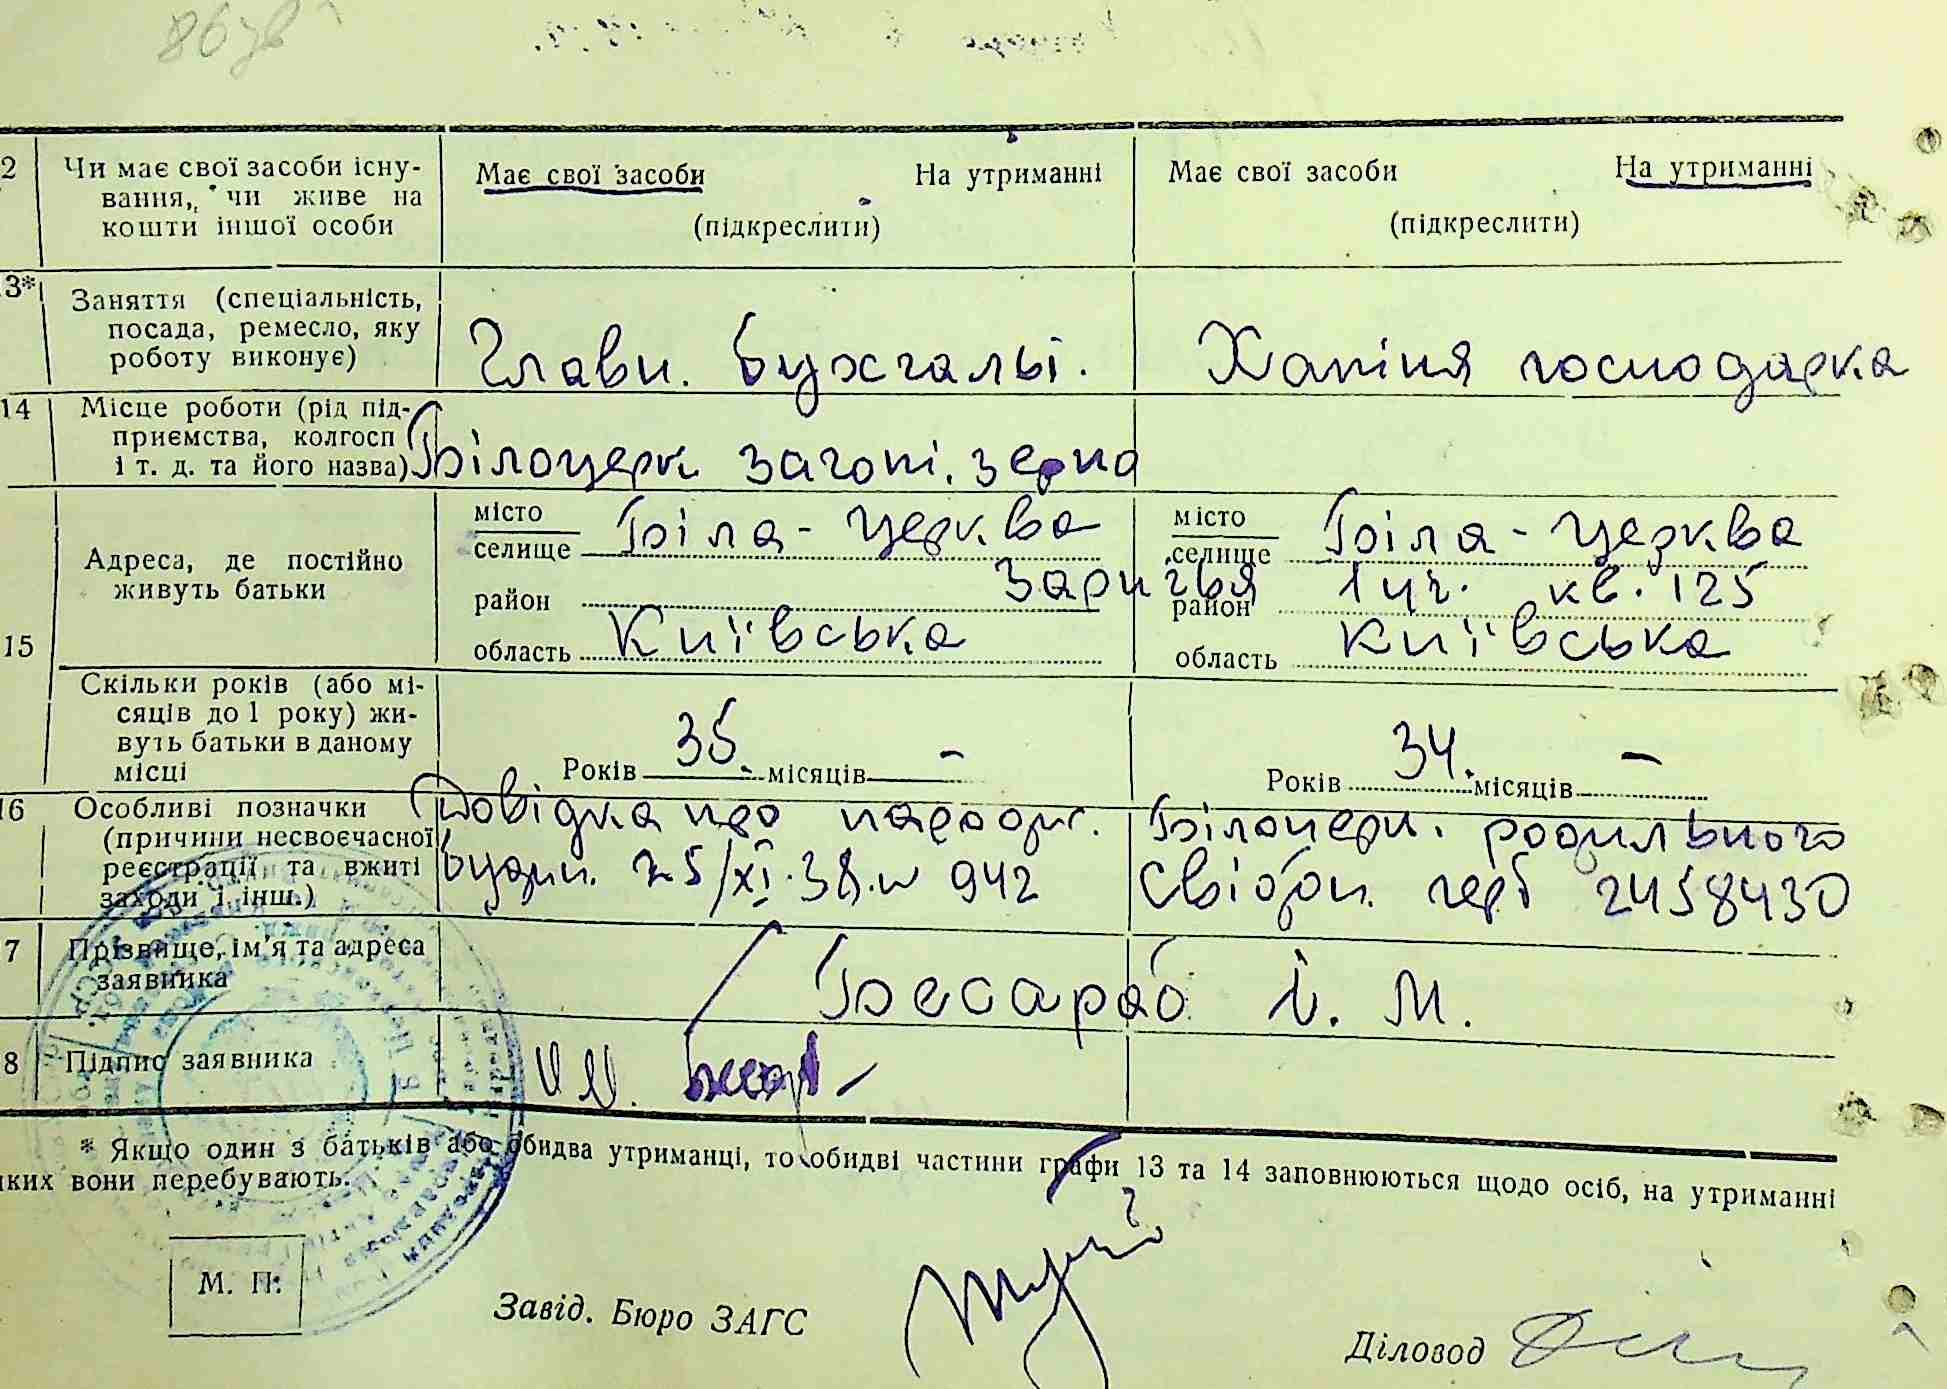 2 Чи має свої засоби існу-
вання, чи живе на
кошти іншої особи
Має свої засоби На утриманні
(підкреслити)
Має свої засоби На утриманні
(підкреслити)
3* Заняття (спеціальність,
посада, ремесло, яку
роботу виконує)
Главн. бухгальт.
Хатня господарка
14 Місце роботи (рід під-
приємства, колгосп
і т. д. та його назва)
Білоцерк. загот. зерно
15 Адреса, де постійно
живуть батьки
місто
селище Біла-Церква
район
область Київська
місто
селище Біла-Церква
район 1 уч. кв. 125
область Київська
Скільки років (або мі-
сяців до 1 року) жи-
вуть батьки в даному
місці
Років 35. місяців —
Років 34. місяців —
16 Особливі позначки
(причини несвоєчасної
реєстрації та вжиті
заходи і інш.)
Довідка про народж. Білоцерк. родильного
будин. 25/XI.38. № 942 Свідоц. 2458430
7 Прізвище, ім'я та адреса
заявника
Бесараб І. М.
8 Підпис заявника
* Якщо один з батьків або обидва утриманці, то обидві частини графи 13 та 14 заповнюються щодо осіб, на утриманні
яких вони перебувають.
М. П.
Завід. Бюро ЗАГС
Діловод